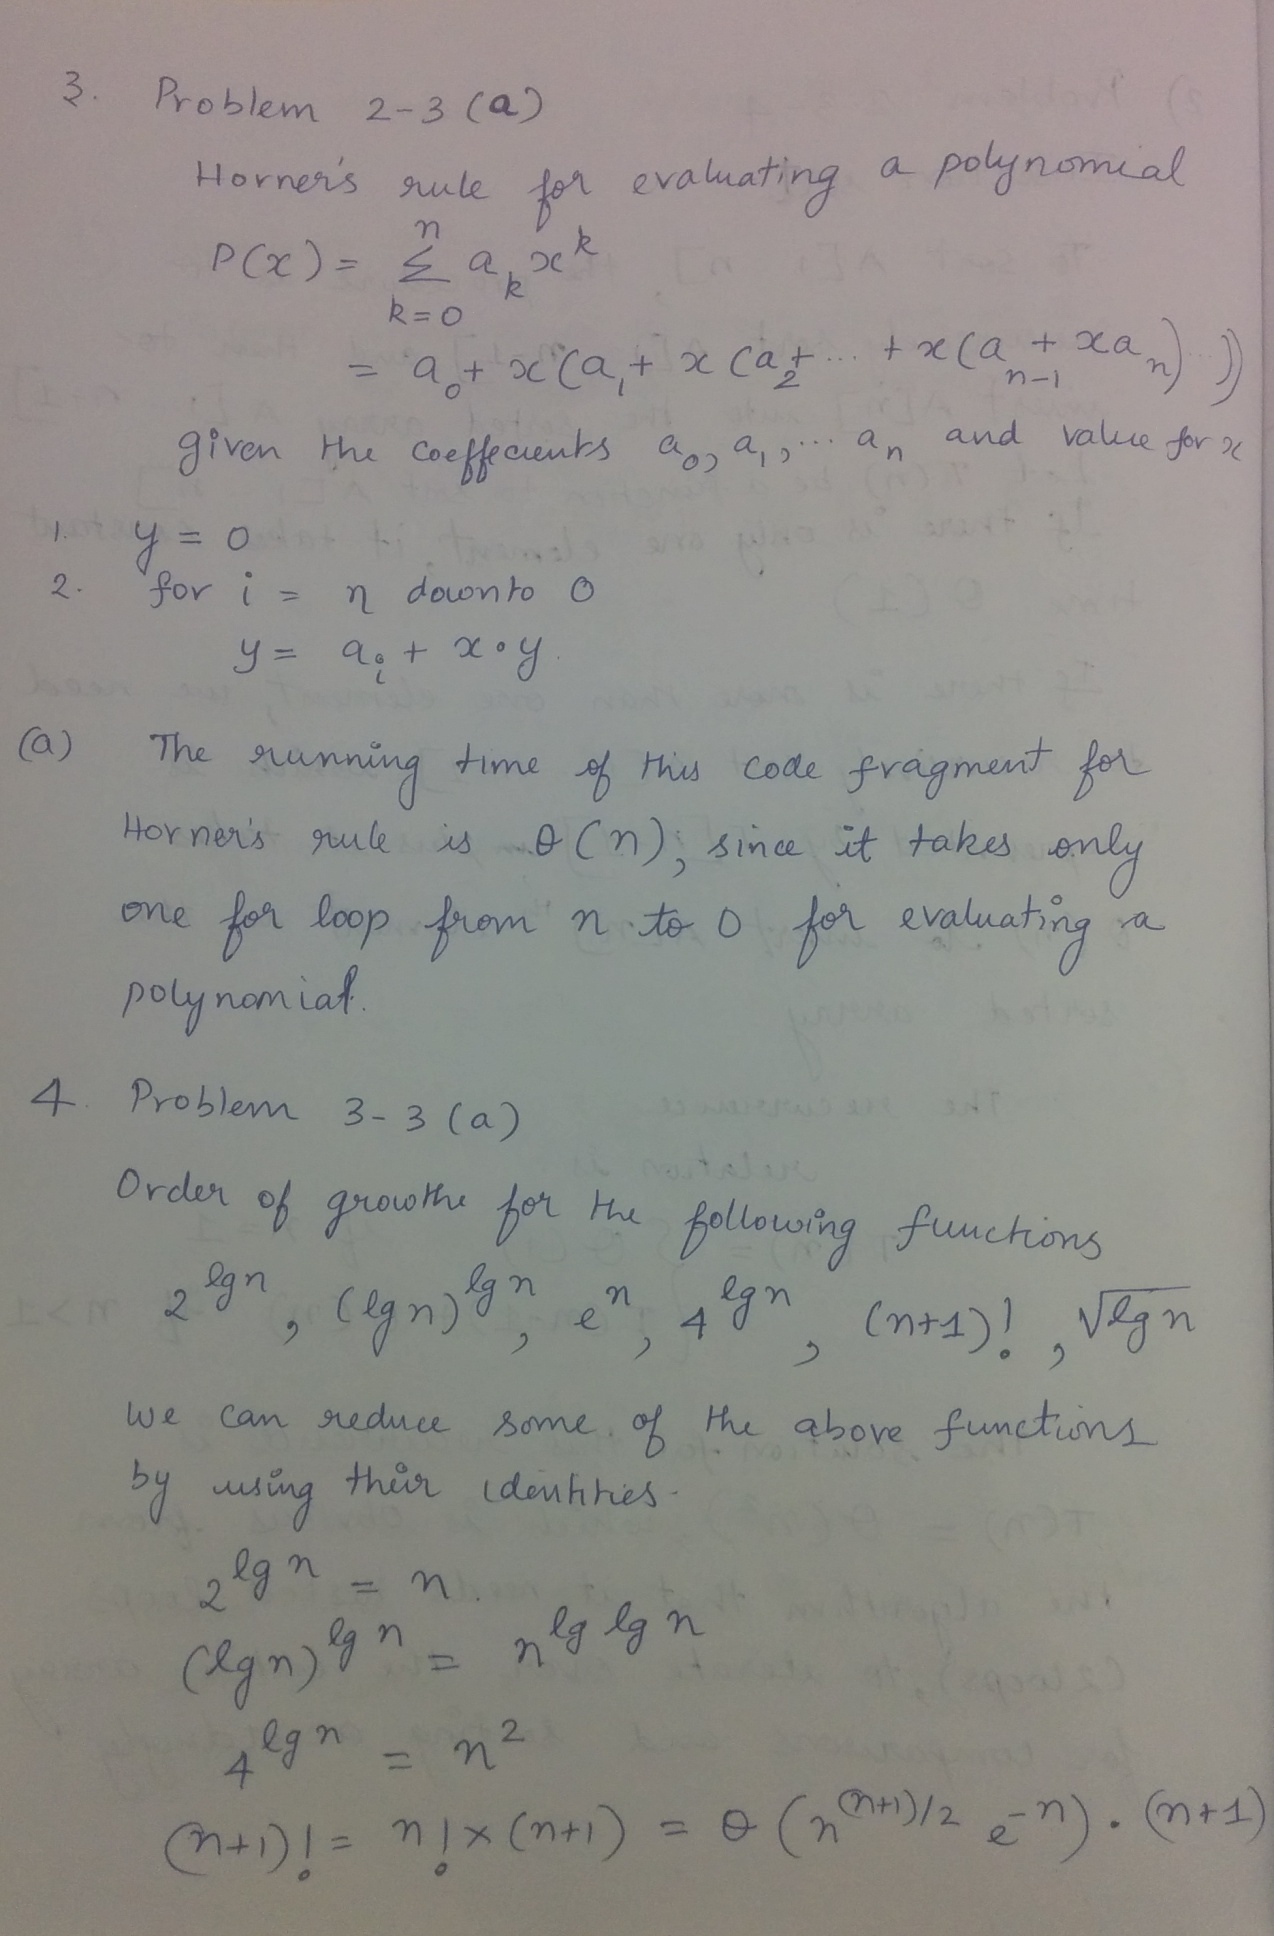 3. Problem 2-3 (a)
Horner's rule for evaluating a polynomial
P(x) = Σ_{k=0}^{n} a_k x^k
= a_0 + x(a_1 + x(a_2 + ... + x(a_{n-1} + xa_n)...))
given the coeffecients a_0, a_1, ... a_n and value for x
1. y = 0
2. for i = n downto 0
y = a_i + x·y
(a) The running time of this code fragment for
Horner's rule is θ(n), since it takes only
one for loop from n to 0 for evaluating a
polynomial.
4. Problem 3-3 (a)
Order of growthe for the following functions
2^{lg n}, (lg n)^{lg n}, e^n, 4^{lg n}, (n+1)!, √lg n
We can reduce some of the above functions
by using their identities.
2^{lg n} = n.
(lg n)^{lg n} = n^{lg lg n}
4^{lg n} = n^2
(n+1)! = n! × (n+1) = θ(n^{(n+1)/2} e^{-n}) · (n+1)